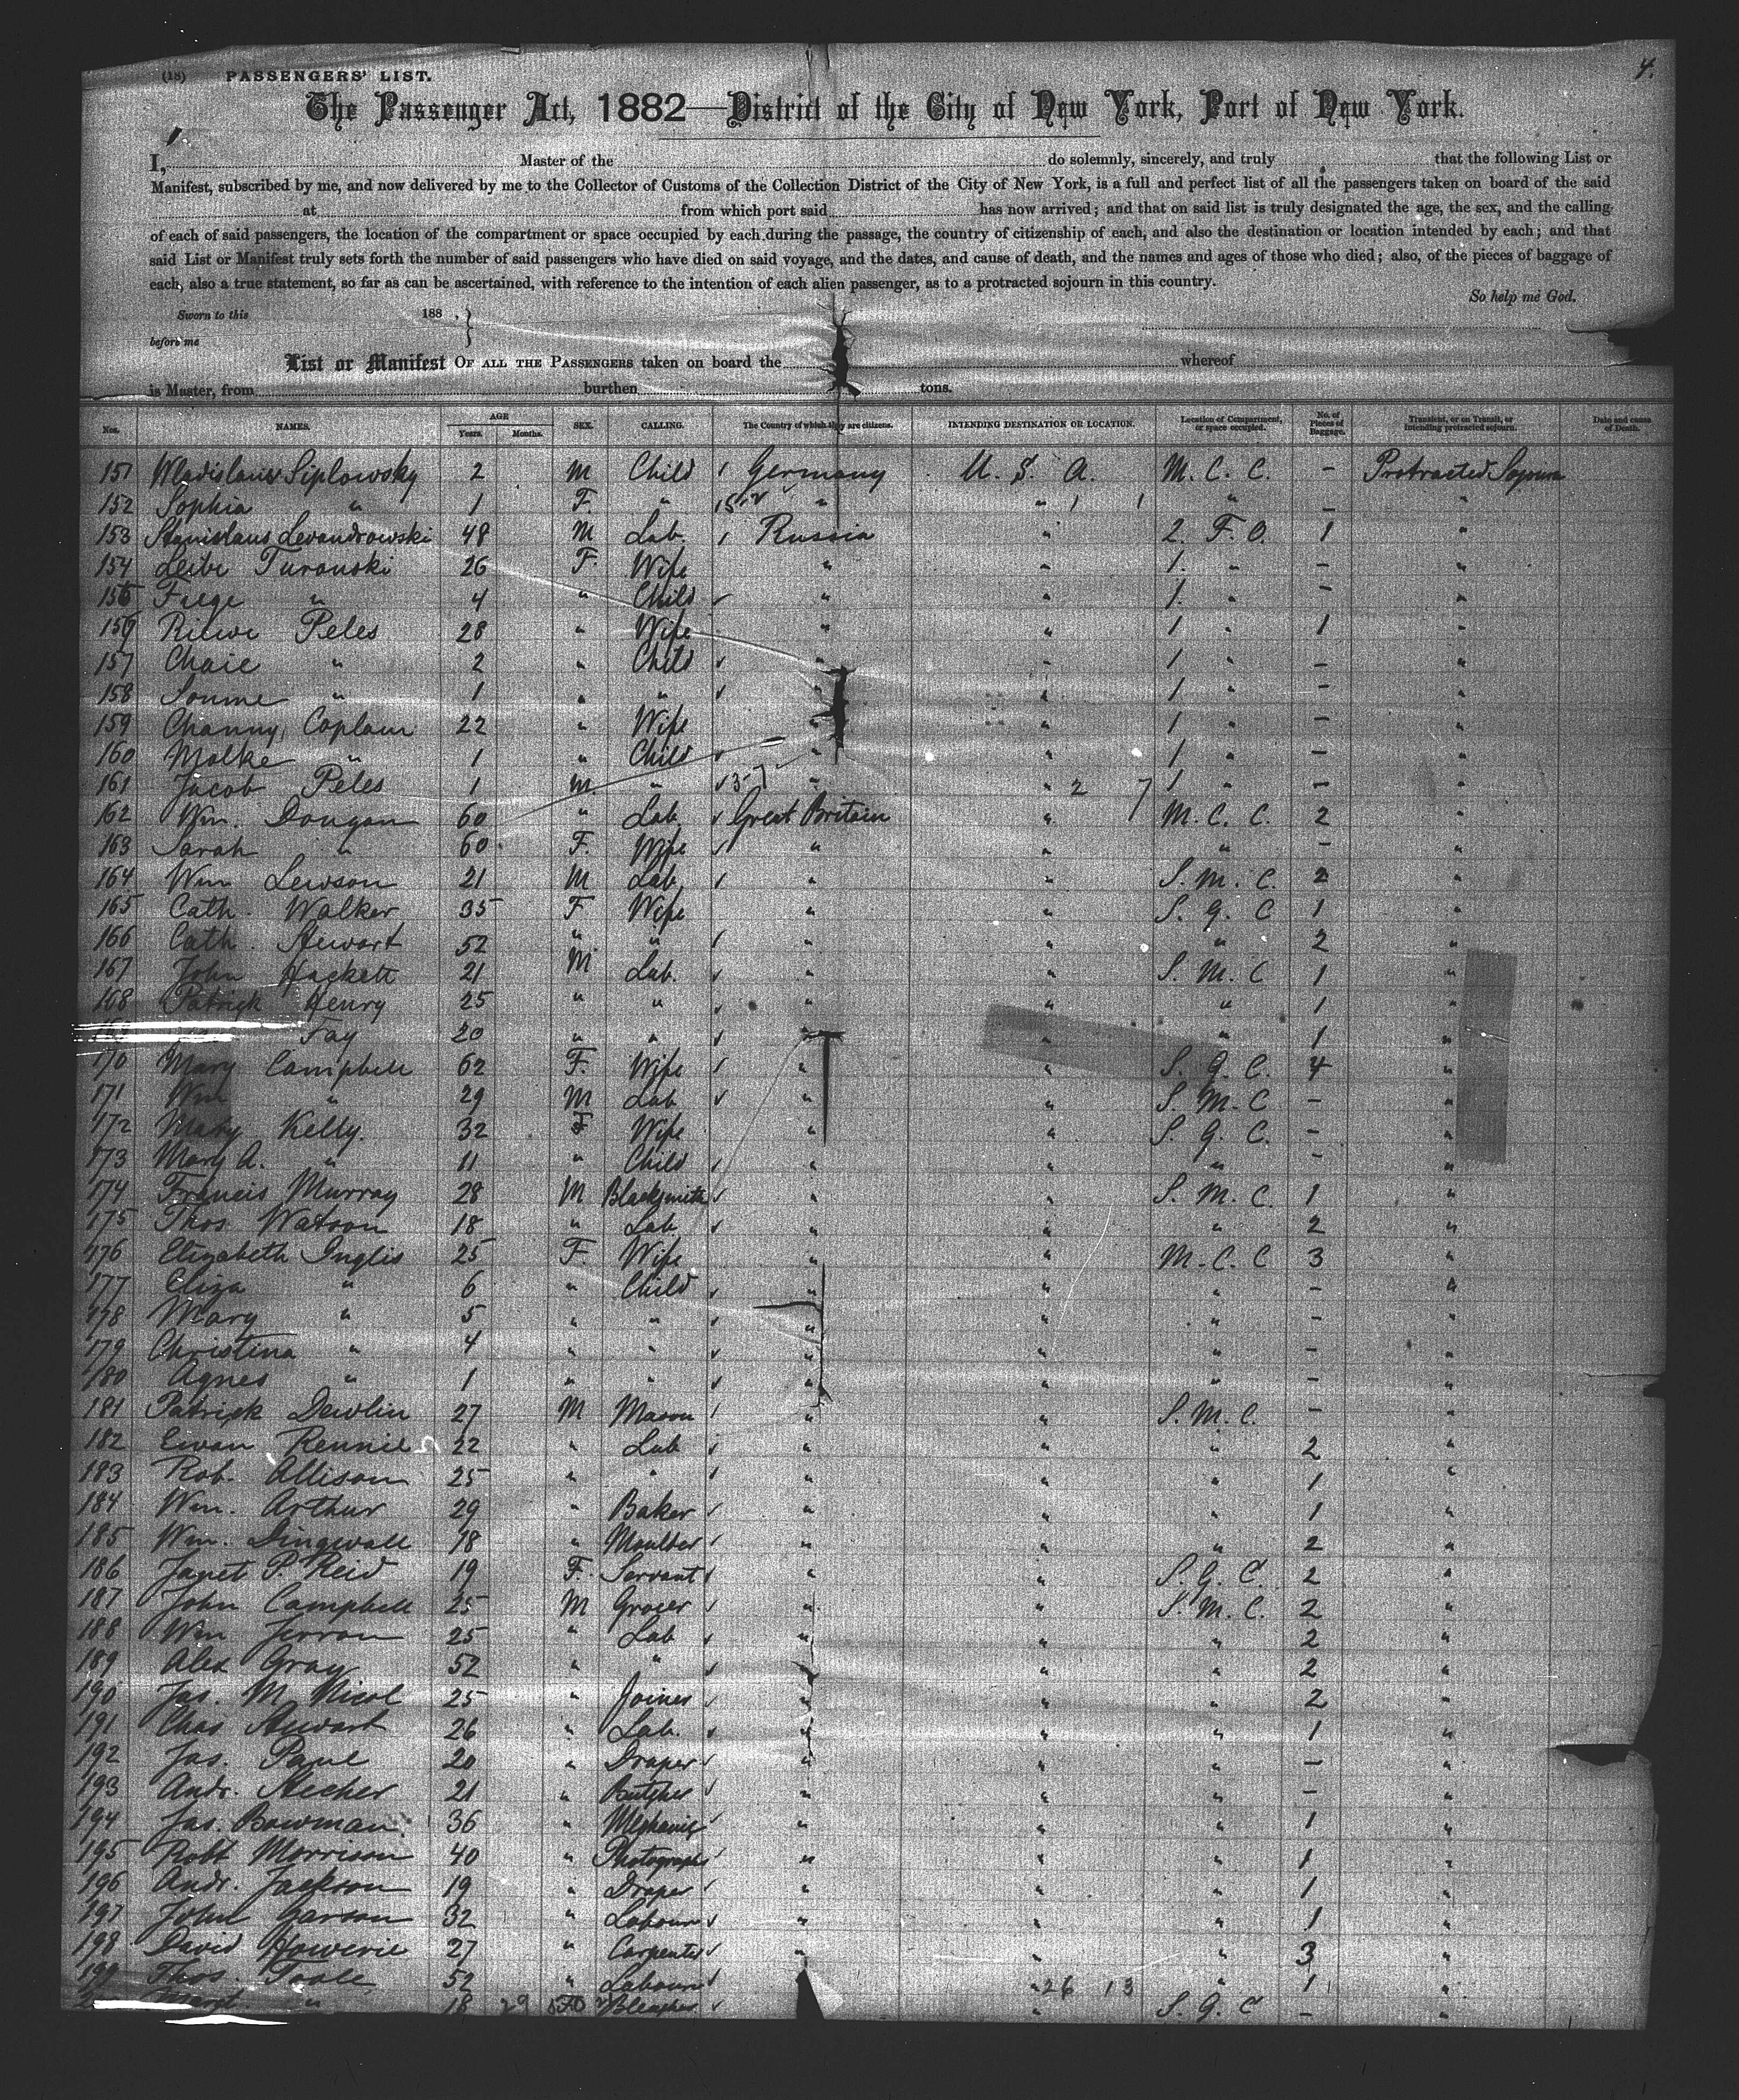 4.
(18) PASSENGERS' LIST.
The Passenger Act, 1882—District of the City of New York, Port of New York.
I, Master of the do solemnly, sincerely, and truly that the following List or
Manifest, subscribed by me, and now delivered by me to the Collector of Customs of the Collection District of the City of New York, is a full and perfect list of all the passengers taken on board of the said
at from which port said has now arrived; and that on said list is truly designated the age, the sex, and the calling
of each of said passengers, the location of the compartment or space occupied by each during the passage, the country of citizenship of each, and also the destination or location intended by each; and that
said List or Manifest truly sets forth the number of said passengers who have died on said voyage, and the dates, and cause of death, and the names and ages of those who died; also, of the pieces of baggage of
each, also a true statement, so far as can be ascertained, with reference to the intention of each alien passenger, as to a protracted sojourn in this country.
So help me God.
Sworn to this 188 ,
before me
List or Manifest OF ALL THE PASSENGERS taken on board the whereof
is Master, from burthen tons.
Nos. NAMES. AGE Years. Months. SEX. CALLING. The Country of which they are citizens. INTENDING DESTINATION OR LOCATION. Location of Compartment, or space occupied. No. of Pieces of Baggage. Transient, or on Transit, or intending protracted sojourn. Date and cause of Death.
151 Wladislaus Siplowsky 2 M Child Germany U. S. A. M. C. C. - Protracted Sojourn
152 Sophia " 1 F. " " " " - "
153 Stanislaus Levandrowski 48 M Lab. Russia " 2. F. O. 1 "
154 Leibe Turanski 26 F. Wife " " 1. " - "
155 Feege " 4 " Child " " 1. " - "
156 Peles 28 " Wife " " 1 " 1 "
157 Chaie " 2 " Child " " 1 " - "
158 " 1 " " " " 1 " - "
159 Channy Coplam 22 " Wife " " 1 " - "
160 Malke " 1 " Child " " 1 " - "
161 Jacob Peles 1 M " 3-7 " " 2 7 1 " - "
162 Wm. Dougan 60 " Lab. Great Britain " M. C. C. 2 "
163 Sarah " 60 F. Wife " " " - "
164 Wm Lewson 21 M Lab. " " S. M. C. 2 "
165 Cath. Walker 35 F Wife " " S. G. C 1 "
166 Cath. Stewart 52 " " " " " 2 "
167 John Hackett 21 M Lab. " " S. M. C 1 "
168 Patrick Henry 25 " " " " " 1 "
Fay 20 " " " " " 1 "
170 Mary Campbell 62 F. Wife " " S. G. C. 4 "
171 Wm " 29 M Lab " " S. M. C - "
172 Mary Kelly. 32 F Wife " " S. G. C. - "
173 Mary A. " 11 " Child " " " - "
174 Francis Murray 28 M Blacksmith " " S. M. C. 1 "
175 Thos. Watson 18 " Lab " " " 2 "
176 Elizabeth Inglis 25 F. Wife " " M. C. C 3 "
177 Eliza " 6 " Child " " " - "
178 Mary " 5 " " " " " - "
179 Christina " 4 " " " " " - "
180 Agnes " 1 " " " " " - "
181 Patrick Dewlin 27 M Mason " " S. M. C. - "
182 Ewan Rennie 22 " Lab " " " 2 "
183 Rob. Allison 25 " " " " " 1 "
184 Wm. Arthur 29 " Baker " " " 1 "
185 Wm. Dingwall 18 " Moulder " " " 2 "
186 Janet P. Reid 19 F. Servant " " S. G. C. 2 "
187 John Campbell 25 M Grocer " " S. M. C. 2 "
188 Wm 25 " Lab " " " 2 "
189 Alex Gray 52 " " " " " 2 "
190 Jas. M Nicol 25 " Joiner " " " 2 "
191 Chas Stewart 26 " Lab. " " " 1 "
192 Jas. Paul 20 " Draper " " " - "
193 Andr. 21 " Butcher " " " - "
194 Jas. Bowman 36 " Mechanic " " " 1 "
195 Robt Morrison 40 " Photograph " " " 1 "
196 Andr. Jackson 19 " Draper " " " 1 "
197 John Carson 32 " Labour " " " 1 "
198 David Howerie 27 " Carpenter " " " 3 "
199 Thos. Toole 52 " Labour " " 26 13 " 1 "
" 18 29 " S. G. C - "